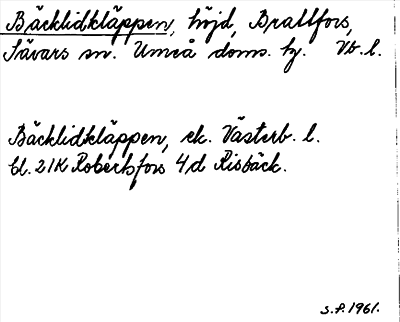 Bäcklidkläppen, höjd, Brattfors,
Sävars sn. Umeå doms. hj. Vb. l.
Bäcklidkläppen, ek. Västerb. l.
bl. 21K Robertsfors 4d Risbäck.
S.F. 1961.